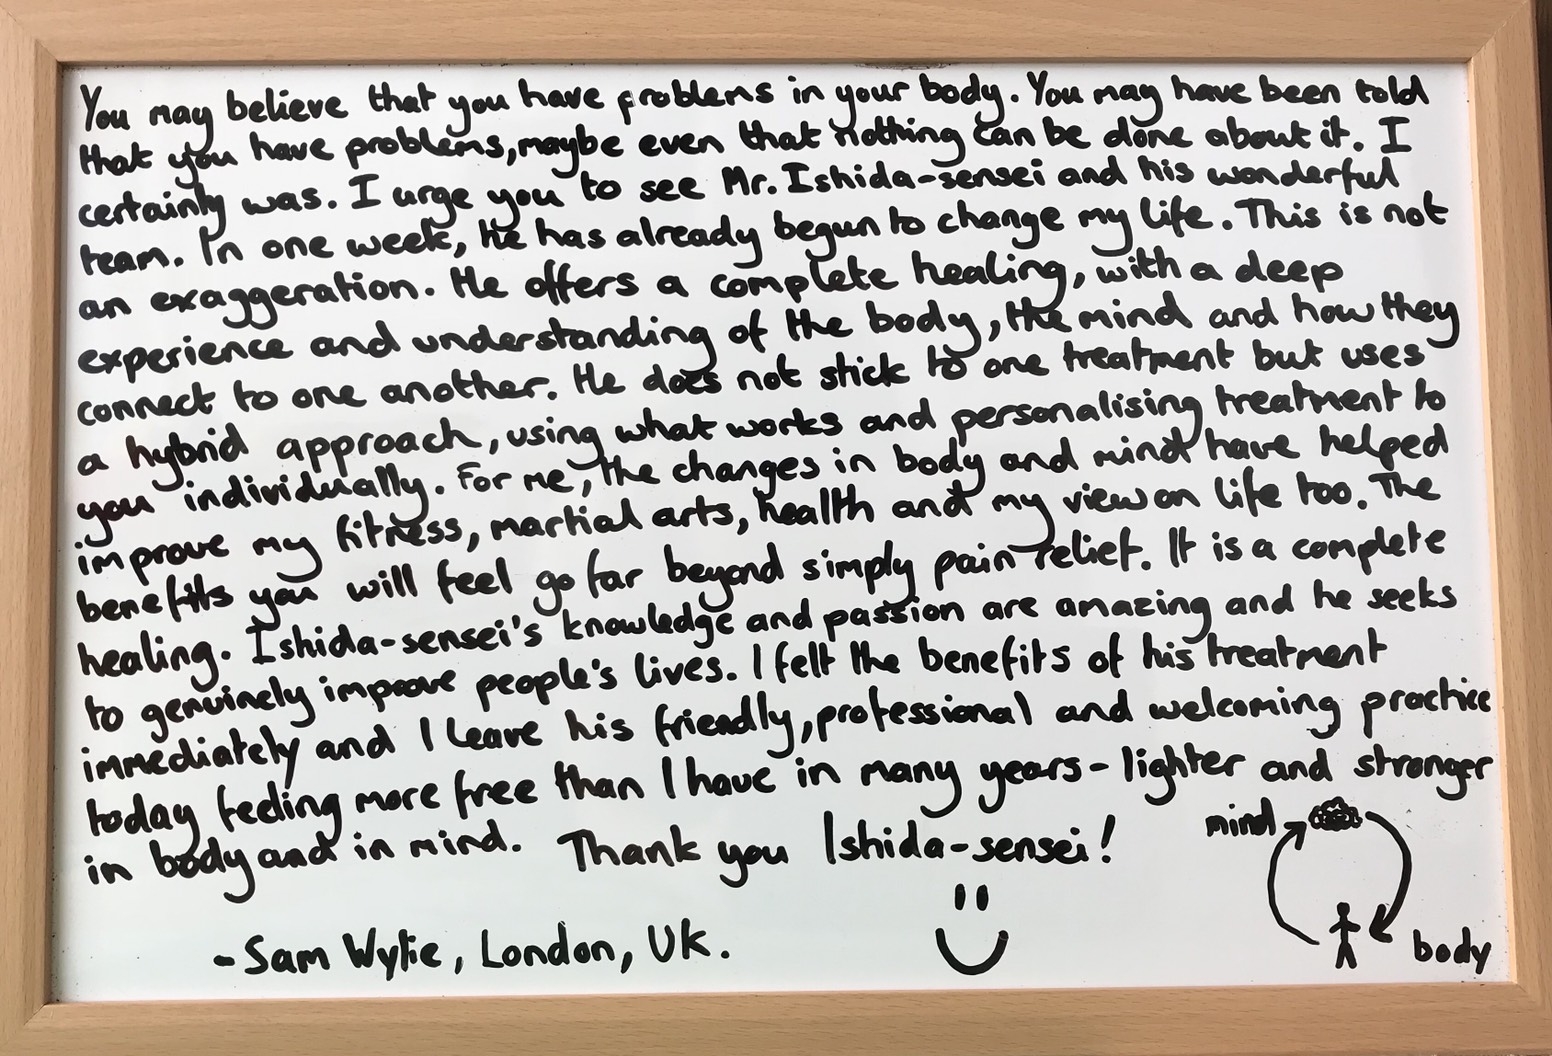 You may believe that you have problems in your body. You may have been told
that you have problems, maybe even that nothing can be done about it. I
certainly was. I urge you to see Mr. Ishida-sensei and his wonderful
team. In one week, he has already begun to change my life. This is not
an exaggeration. He offers a complete healing, with a deep
experience and understanding of the body, the mind and how they
connect to one another. He does not stick to one treatment but uses
a hybrid approach, using what works and personalising treatment to
you individually. For me, the changes in body and mind have helped
improve my fitness, martial arts, health and my view on life too. The
benefits you will feel go far beyond simply pain relief. It is a complete
healing. Ishida-sensei's knowledge and passion are amazing and he seeks
to genuinely improve people's lives. I felt the benefits of his treatment
immediately and I leave his friendly, professional and welcoming practice
today feeling more free than I have in many years - lighter and stronger
in body and in mind. Thank you Ishida-sensei!
mind
- Sam Wylie, London, UK.
body